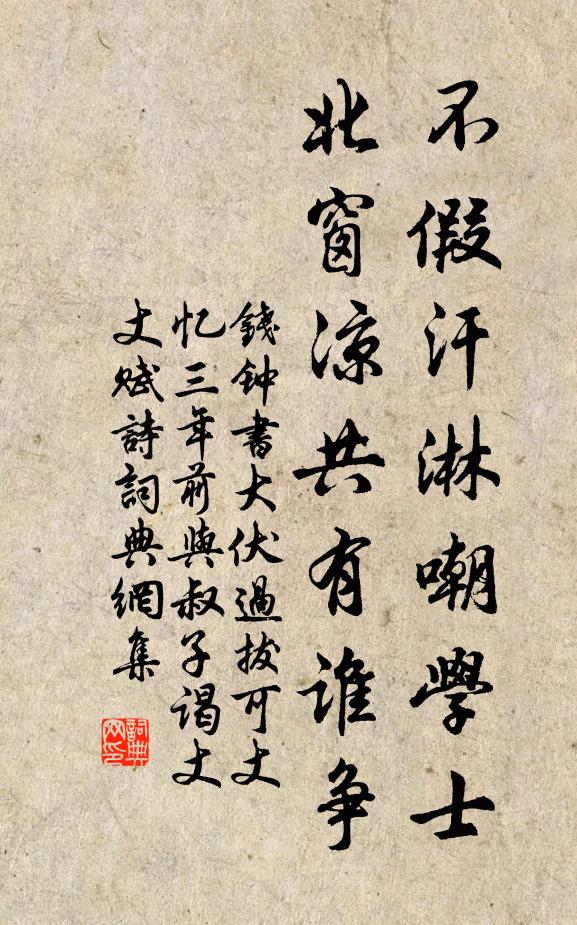 不假汗淋嘲學士
北窗凉共有誰争
錢钟書大伏過拔可丈
忆三年前與叔子谒丈
丈赋詩詞典網集
詞典
网印